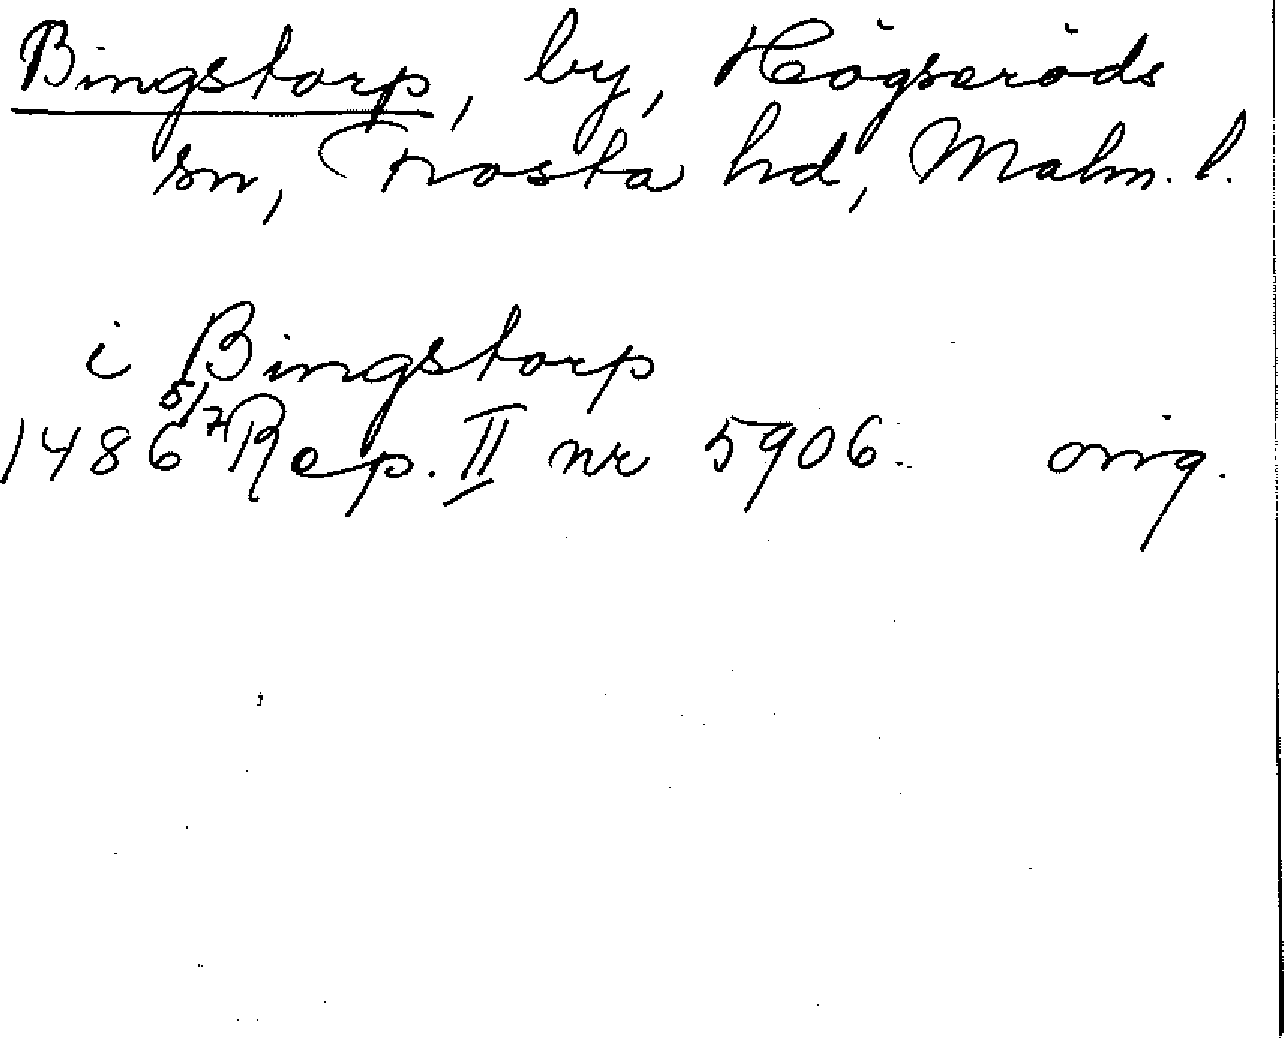 Bingstorp, by, Högseröds
sn, Frosta hd, Malm. l.
i Bingstorp
1486 5/7 Rep. II nr 5906. orig.